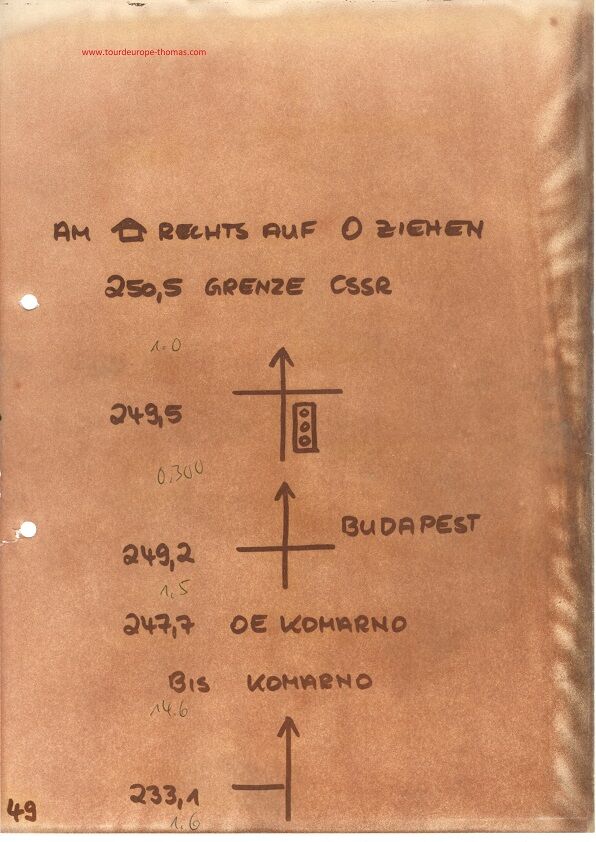 www.tourdeurope-thomas.com
AM RECHTS AUF O ZIEHEN
250,5 GRENZE CSSR
1.0
249,5
0.300
BUDAPEST
249,2
1,5
247,7 OE KOMARNO
BIS KOMARNO
14.6
233,1
1.6
49